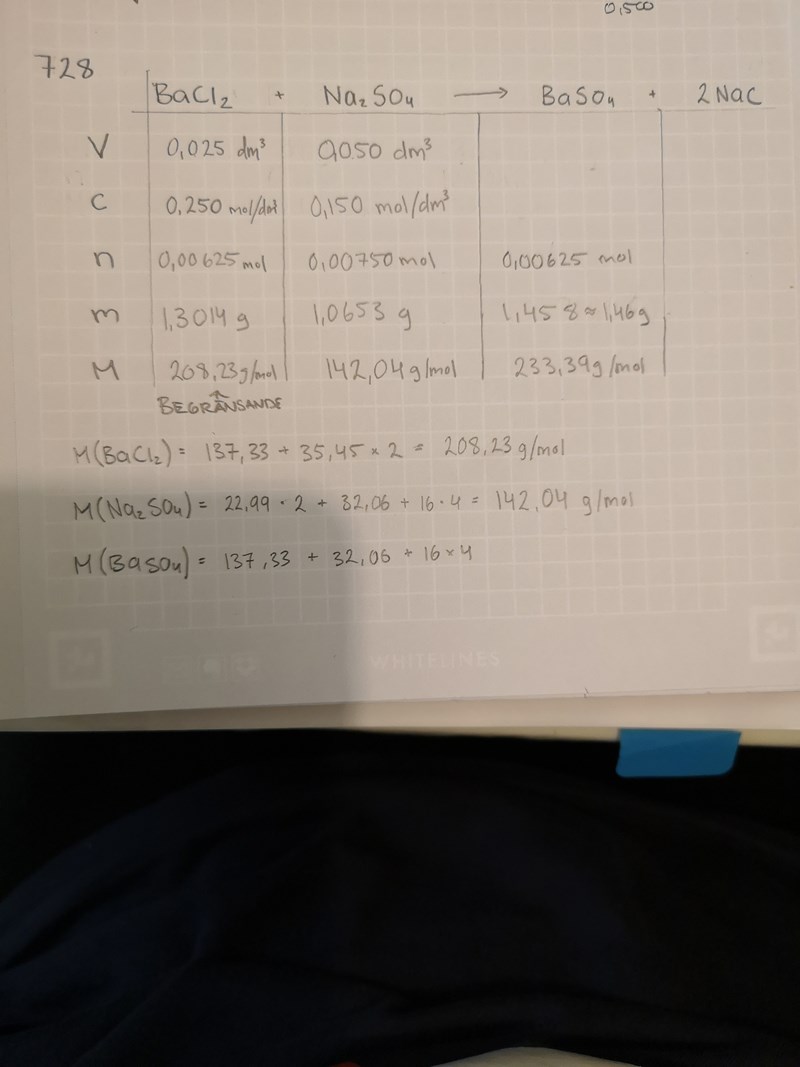 0,500
728
BaCl₂ + Na₂SO₄ → BaSO₄ + 2NaC
V 0,025 dm³ 0,050 dm³
C 0,250 mol/dm³ 0,150 mol/dm³
n 0,00625 mol 0,00750 mol 0,00625 mol
m 1,3014 g 1,0653 g 1,458 ≈ 1,46g
M 208,23g/mol 142,04 g/mol 233,39g/mol
↑
BEGRÄNSANDE
M(BaCl₂) = 137,33 + 35,45 × 2 = 208,23 g/mol
M(Na₂SO₄) = 22,99 · 2 + 32,06 + 16 · 4 = 142,04 g/mol
M(BaSO₄) = 137,33 + 32,06 + 16 × 4
WHITELINES